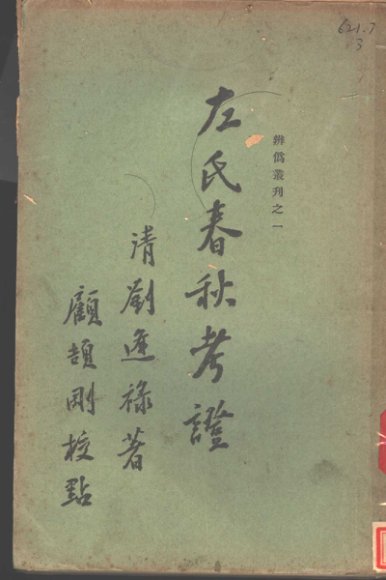 621.7
3
辨僞叢刊之一
左氏春秋考證
清劉逢祿著
顧頡剛校點